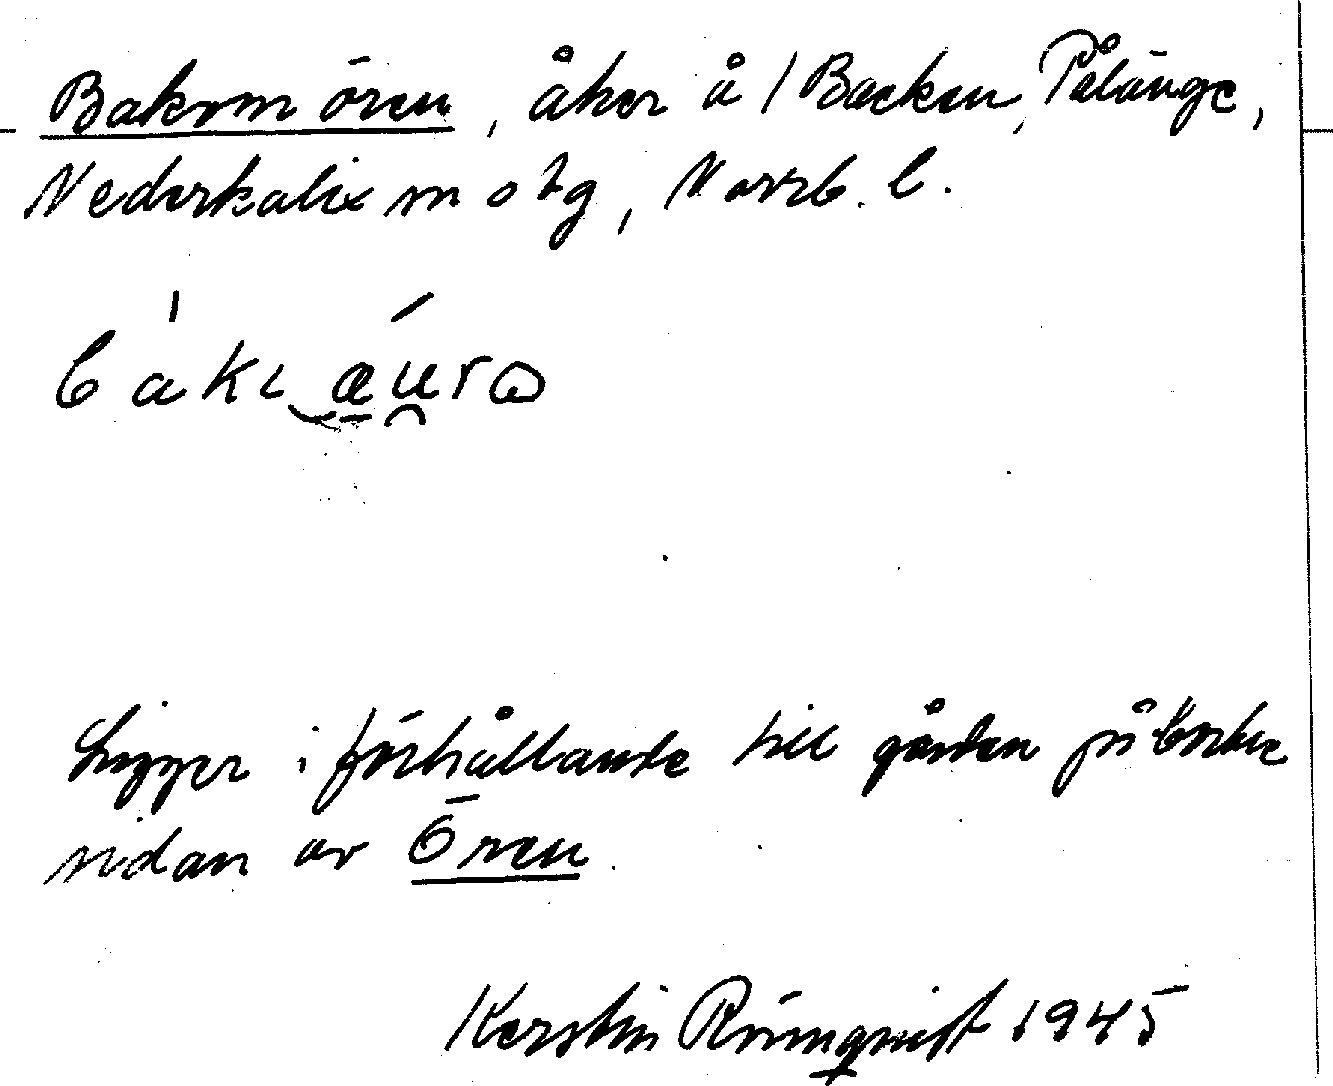 Bakom ören, åker å 1 Backen, Pålänge,
Nederkalix sn o tg, Norrb. l.
bakɩ æ̱u̯rɷ
Ligger i förhållande till gården på bortre
sidan av Ören.
Kerstin Rönnqvist 1945